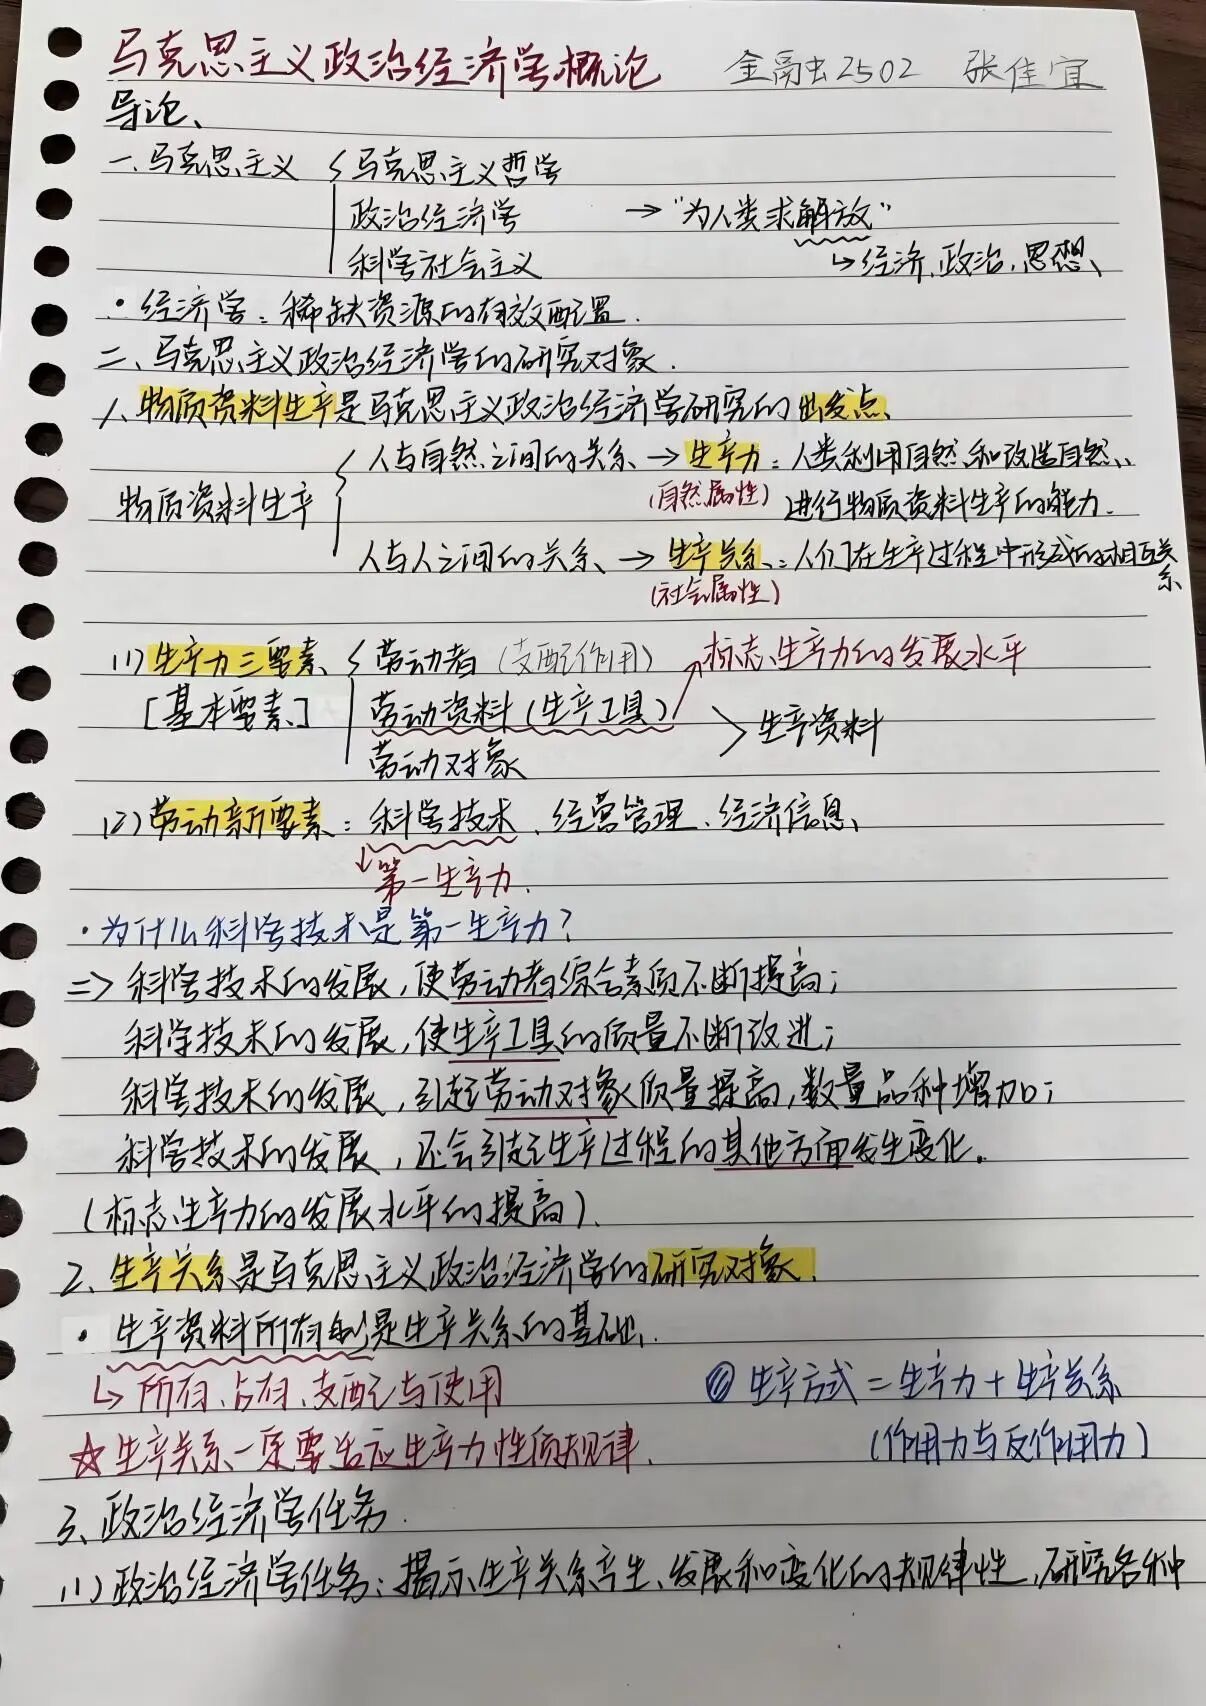 马克思主义政治经济学概论 金融2502 张佳宜
导论、
一.马克思主义 马克思主义哲学
政治经济学 → "为人类求解放"
科学社会主义 ↳经济、政治、思想、
·经济学：稀缺资源的有效配置.
二、马克思主义政治经济学的研究对象.
1、物质资料生产是马克思主义政治经济学研究的出发点、
人与自然之间的关系、→ 生产力：人类利用自然、和改造自然、
物质资料生产 (自然属性) 进行物质资料生产的能力.
人与人之间的关系、→ 生产关系：人们在生产过程中形成的相互关系、
(社会属性)
(1) 生产力三要素 劳动者（支配作用） 标志生产力的发展水平
[基本要素] 劳动资料（生产工具） > 生产资料
劳动对象
(2) 劳动新要素：科学技术、经营管理、经济信息、
↳第一生产力.
·为什么科学技术是第一生产力？
=> 科学技术的发展，使劳动者综合素质不断提高；
科学技术的发展，使生产工具的质量不断改进；
科学技术的发展，引起劳动对象质量提高，数量品种增加；
科学技术的发展，还会引起生产过程的其他方面发生变化。
（标志生产力的发展水平的提高）.
2、生产关系是马克思主义政治经济学的研究对象.
· 生产资料所有制是生产关系的基础.
↳ 所有、占有、支配与使用 生产方式＝生产力＋生产关系
☆生产关系一定要适应生产力性质规律. （作用力与反作用力）
3、政治经济学任务.
(1) 政治经济学任务：揭示生产关系产生、发展和变化的规律性，研究各种